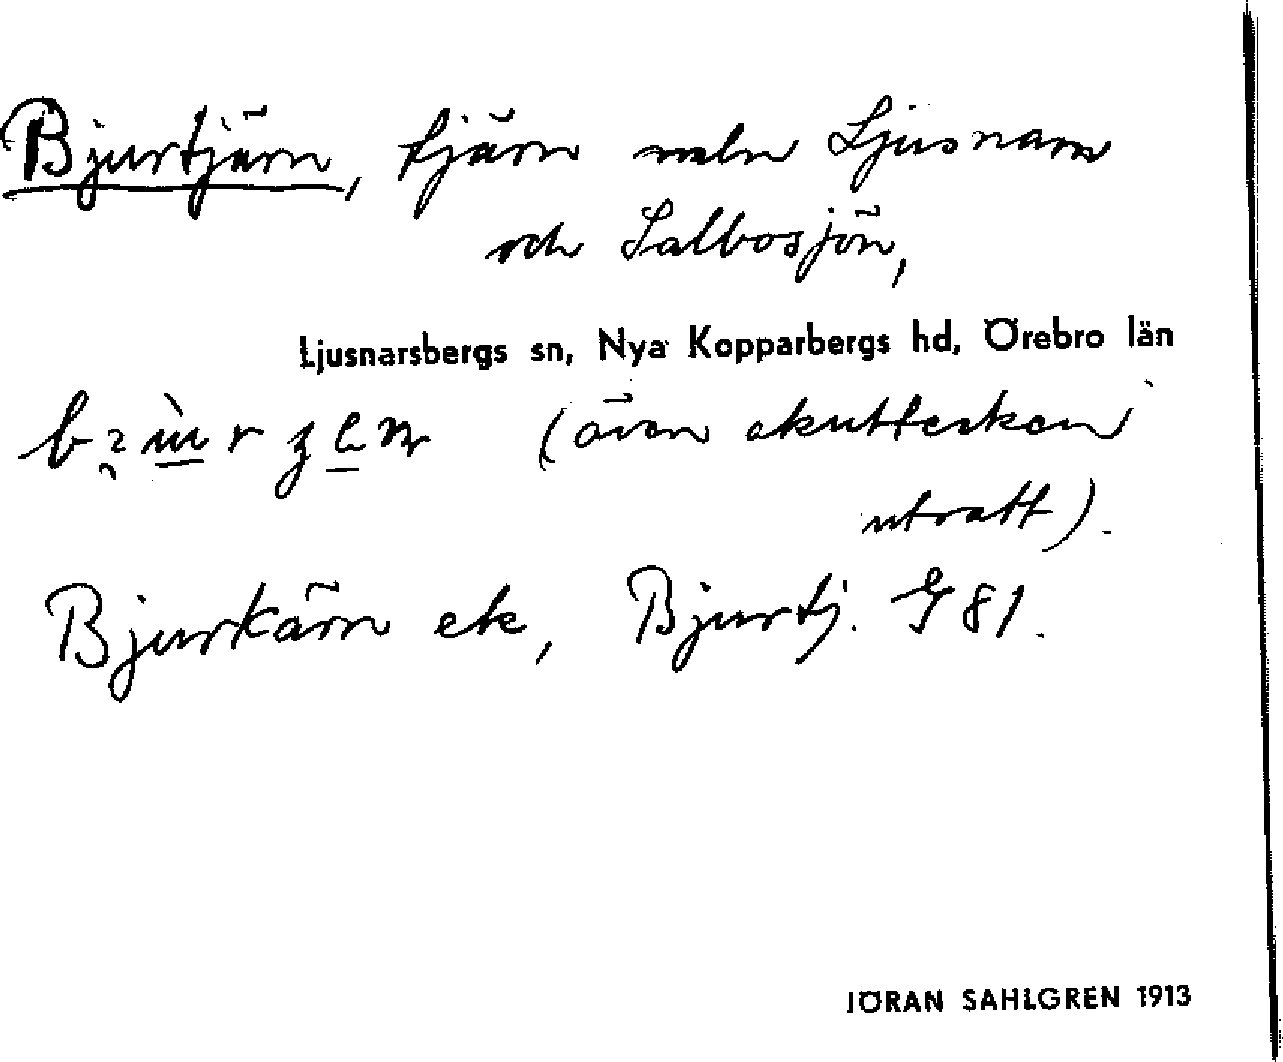 Bjurtjärn, tjärn mellan Ljusnaren
och Salbosjön,
Ljusnarsbergs sn, Nya Kopparbergs hd, Örebro län
(även akuttecken
utsatt).
Bjurkärn ek, Bjurtj. G 81.
JÖRAN SAHLGREN 1913